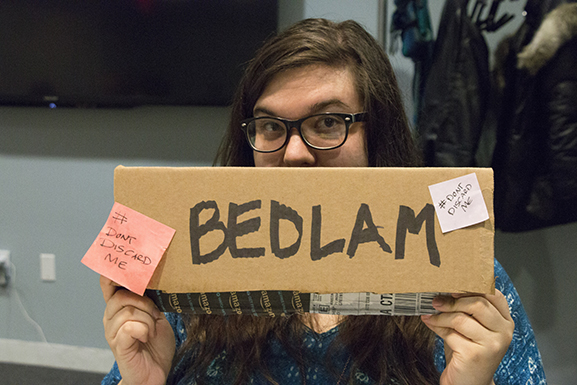 BEDLAM
#
DONT
DISCARD
ME
# DONT
DISCARD
ME